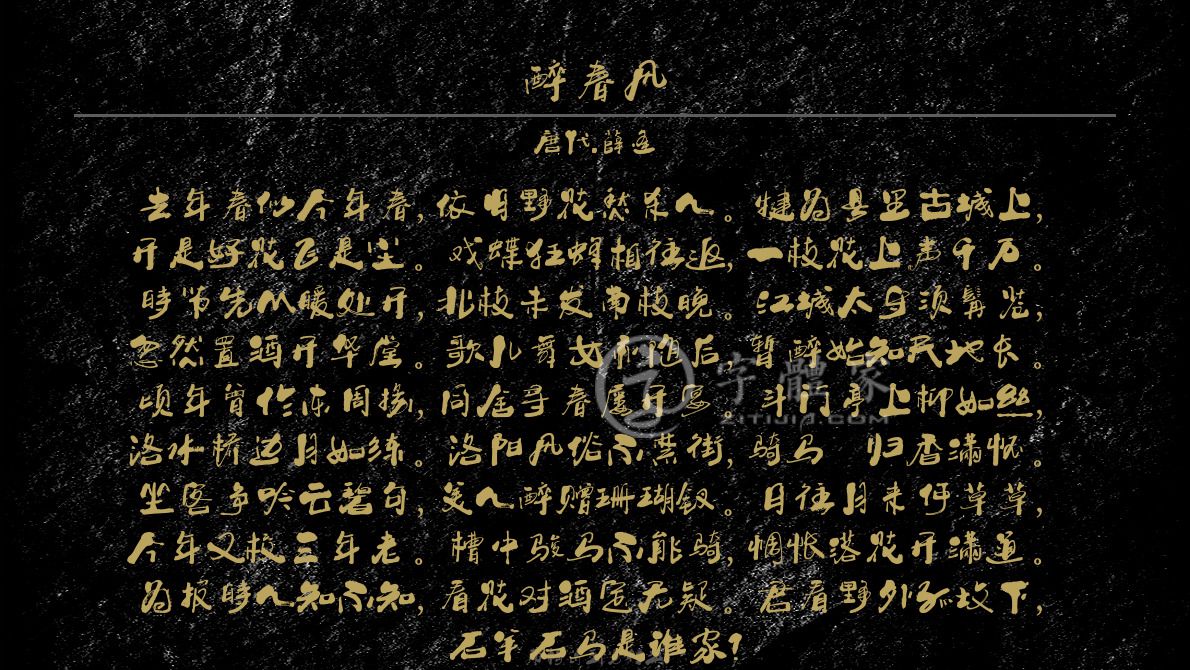 醉春风
唐代.薛逢
去年春似今年春，依旧野花愁杀人。犍为县里古城上，
开是好花飞是尘。戏蝶狂蜂相往返，一枝花上声千万。
時节先从暖处开，北枝未发南枝晚。江城太守须髯苍，
忽然置酒开华堂。歌儿舞女亦随后，暂醉始知天地长。
顷年曾作东周掾，同舍寻春屡开宴。斗门亭上柳如丝，
洛水桥边月如练。洛阳风俗不禁街，骑马 归香满怀。
坐客争吟云碧句，美人醉赠珊瑚钗。日往月来何草草，
今年又校三年老。槽中骏马不能骑，惆怅落花开满道。
为报時人知不知，看花对酒定无疑。君看野外孤坟下，
石羊石马是谁家？
字體家
ZITIJIA.COM